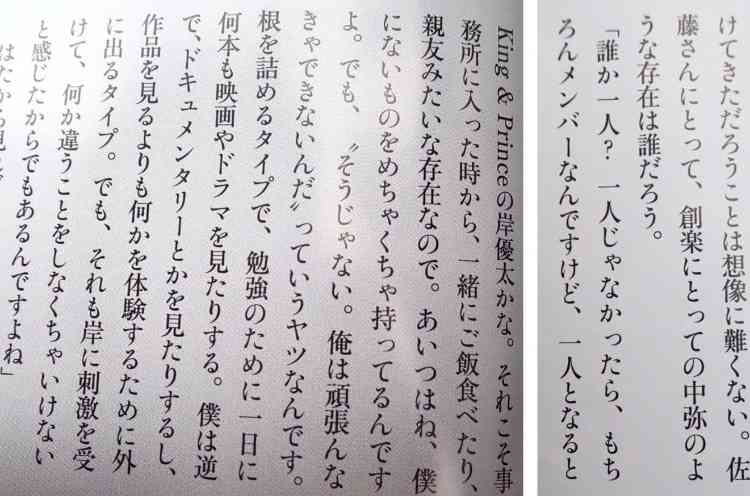 けてきただろうことは想像に難くない。佐
藤さんにとって、創楽にとっての中弥のよ
うな存在は誰だろう。
「誰か一人? 一人じゃなかったら、もち
ろんメンバーなんですけど、一人となると
King & Princeの岸優太かな。それこそ事
務所に入った時から、一緒にご飯食べたり、
親友みたいな存在なので。あいつはね、僕
にないものをめちゃくちゃ持ってるんです
よ。でも、〝そうじゃない。俺は頑張んな
きゃできないんだ〟っていうヤツなんです。
根を詰めるタイプで、勉強のために一日に
何本も映画やドラマを見たりする。僕は逆
で、ドキュメンタリーとかを見たりするし、
作品を見るよりも何かを体験するために外
に出るタイプ。でも、それも岸に刺激を受
けて、何か違うことをしなくちゃいけない
と感じたからでもあるんですよね」